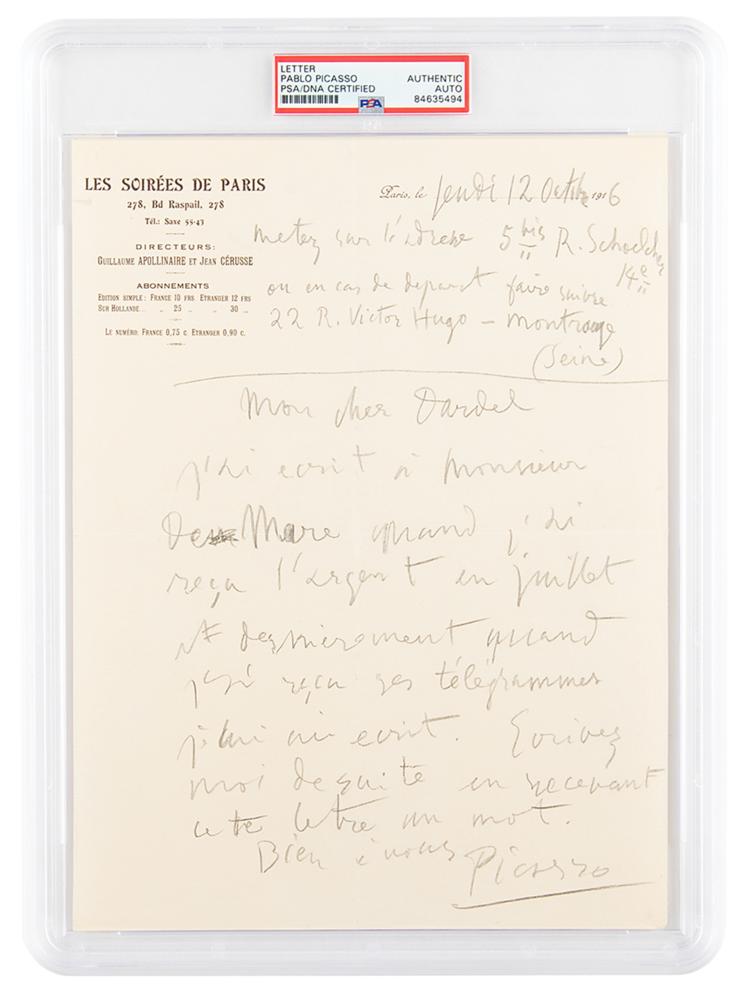 LETTER
PABLO PICASSO AUTHENTIC
PSA/DNA CERTIFIED AUTO
PSA 84635494
LES SOIRÉES DE PARIS
278, Bd Raspail, 278
Tél.: Saxe 55-43
DIRECTEURS:
GUILLAUME APOLLINAIRE ET JEAN CÉRUSSE
ABONNEMENTS
EDITION SIMPLE: FRANCE 10 FRS ETRANGER 12 FRS
SUR HOLLANDE.. „ 25 „ „ 30 „
LE NUMÉRO: FRANCE 0,75 C. ETRANGER 0,90 C.
Paris, le jeudi 12 Octobre 1916
metez sur l'adresse 5 bis R. Schoelcher
14e
ou en cas de depart faire suivre
22 R. Victor Hugo – montrouge
(Seine)
Mon cher Dardel
j'ai ecrit à Monsieur
De Mare quand j'ai
reçu l'argent en juillet
et dernierement quand
j'ai reçu ses télégrammes
j'lui ai ecrit. Ecrivez
moi de suite en recevant
cette letre un mot.
Bien à vous
Picasso